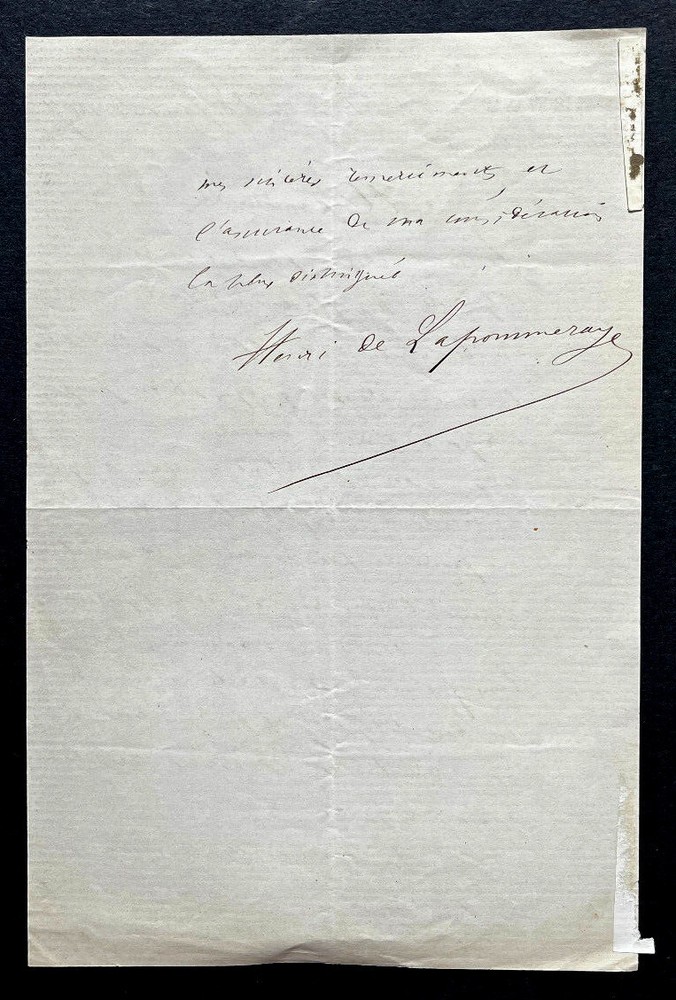 mes sincères remerciements et
l'assurance de ma considération
la plus distinguée
Henri de Lapommeraye